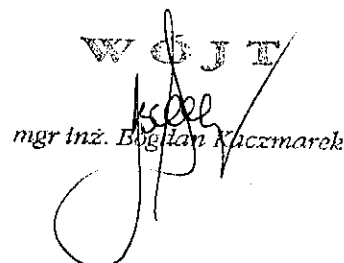 WÓJT
mgr inż. Bogdan Kaczmarek